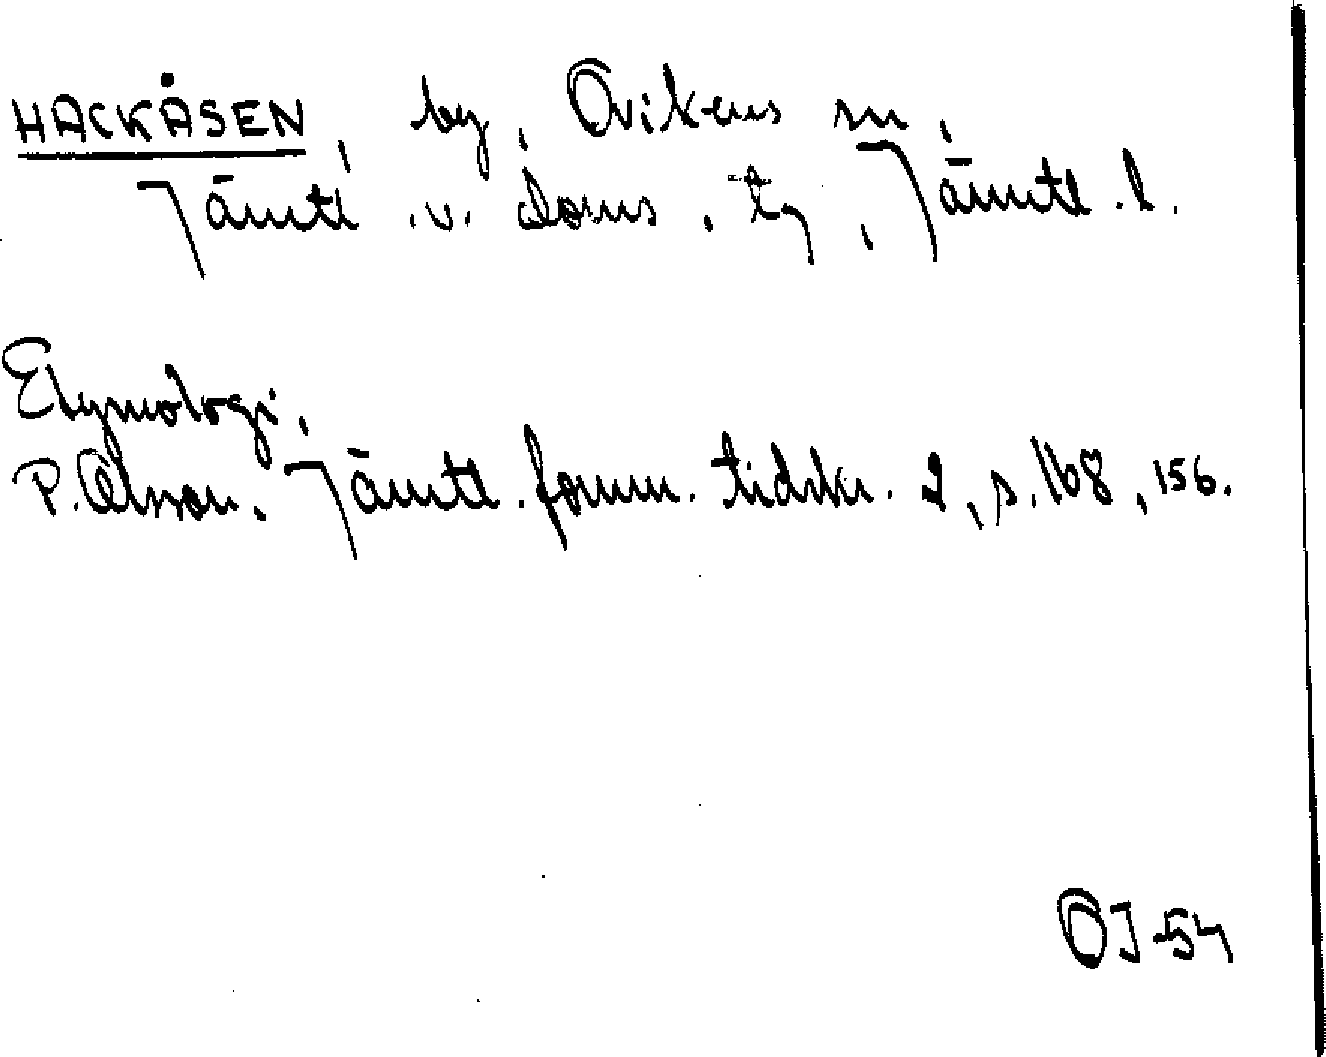 HACKÅSEN, by, Ovikens sn,
Jämtl. v. doms. tg, Jämtl. l.
Etymologi.
P. Olsson. Jämtl. fornm. tidskr. 2, s. 168, 156.
OJ-54